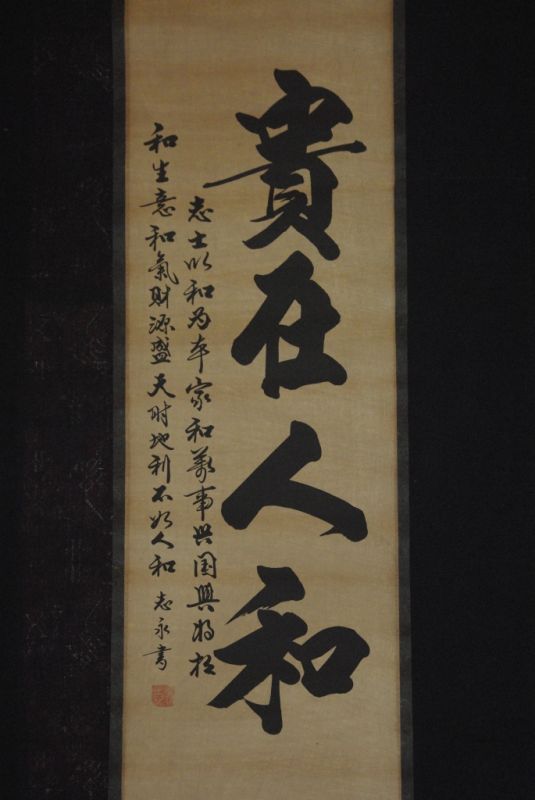 貴在人和
志士以和为本家和萬事兴国興将相
和生意和氣财源盛天时地利不如人和 志永書